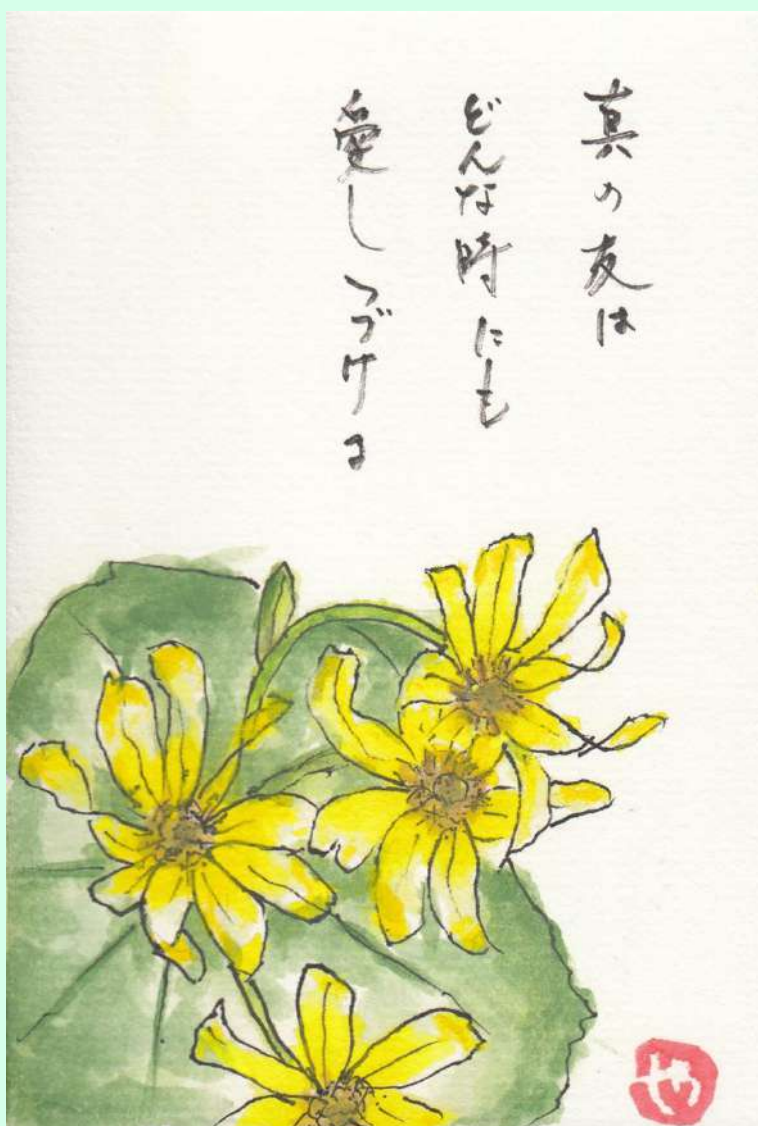 真の友は
どんな時にも
愛しつづける